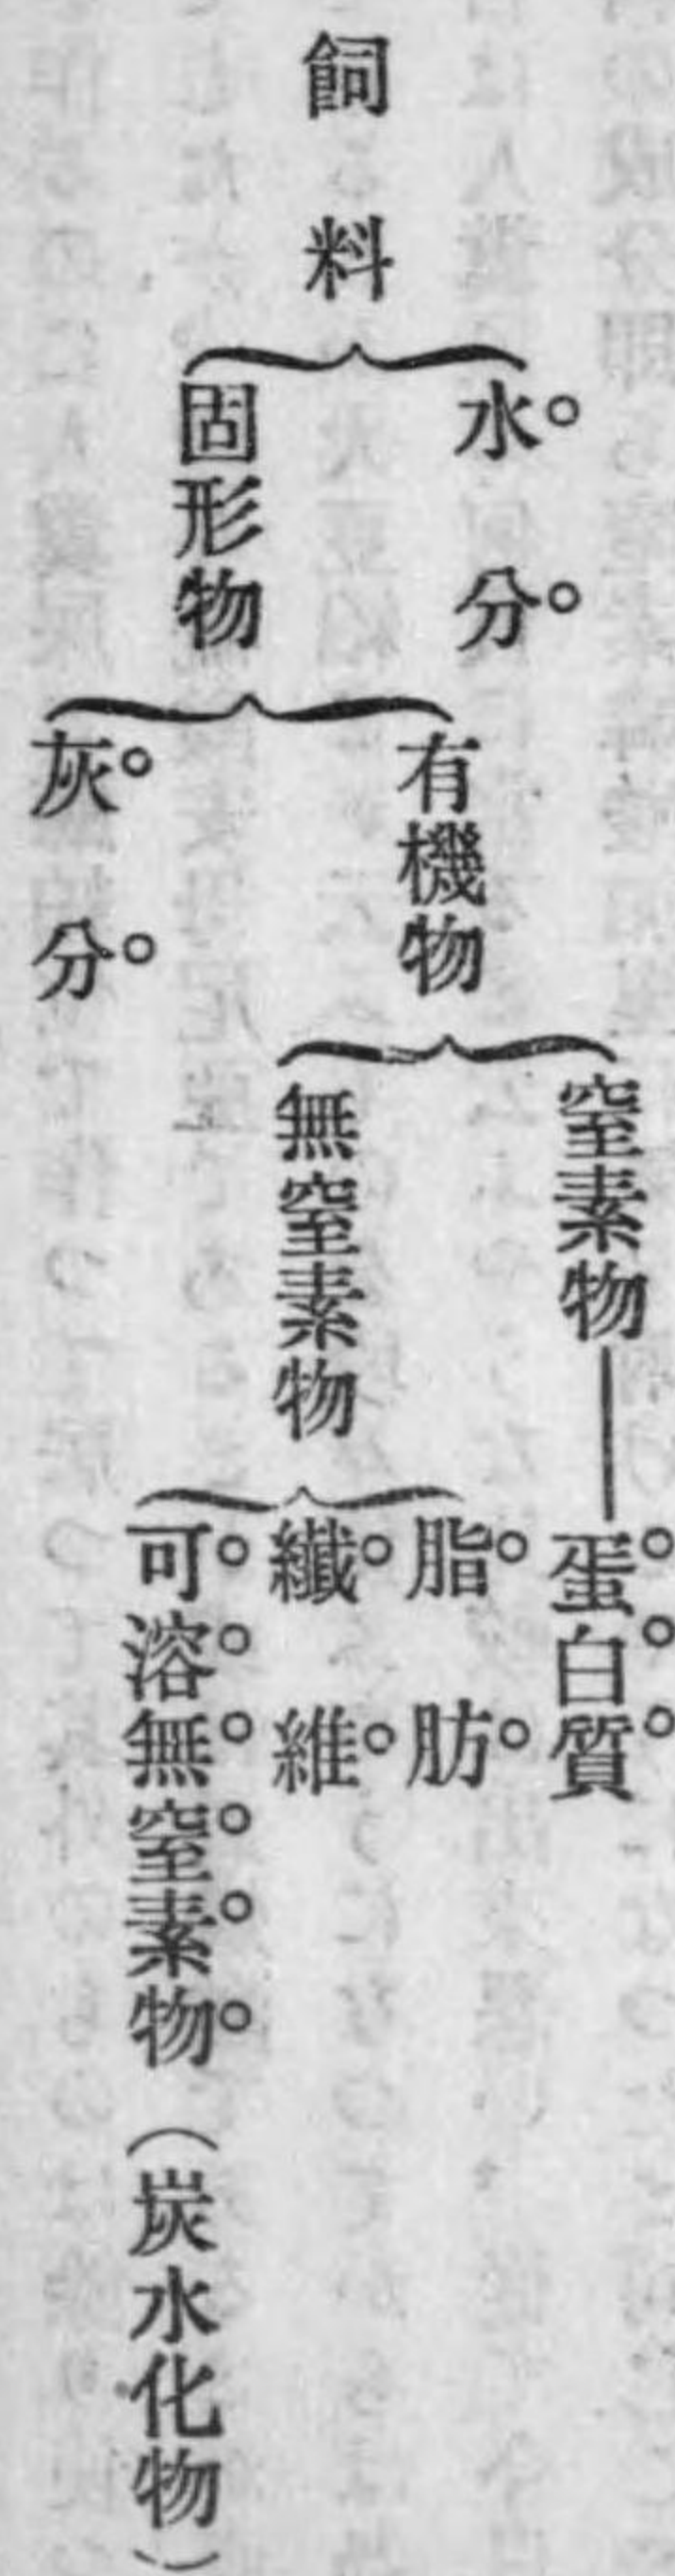 飼料
水分
固形物
有機物
灰分
窒素物
無窒素物
蛋白質
脂肪
纖維
可溶無窒素物(炭水化物)